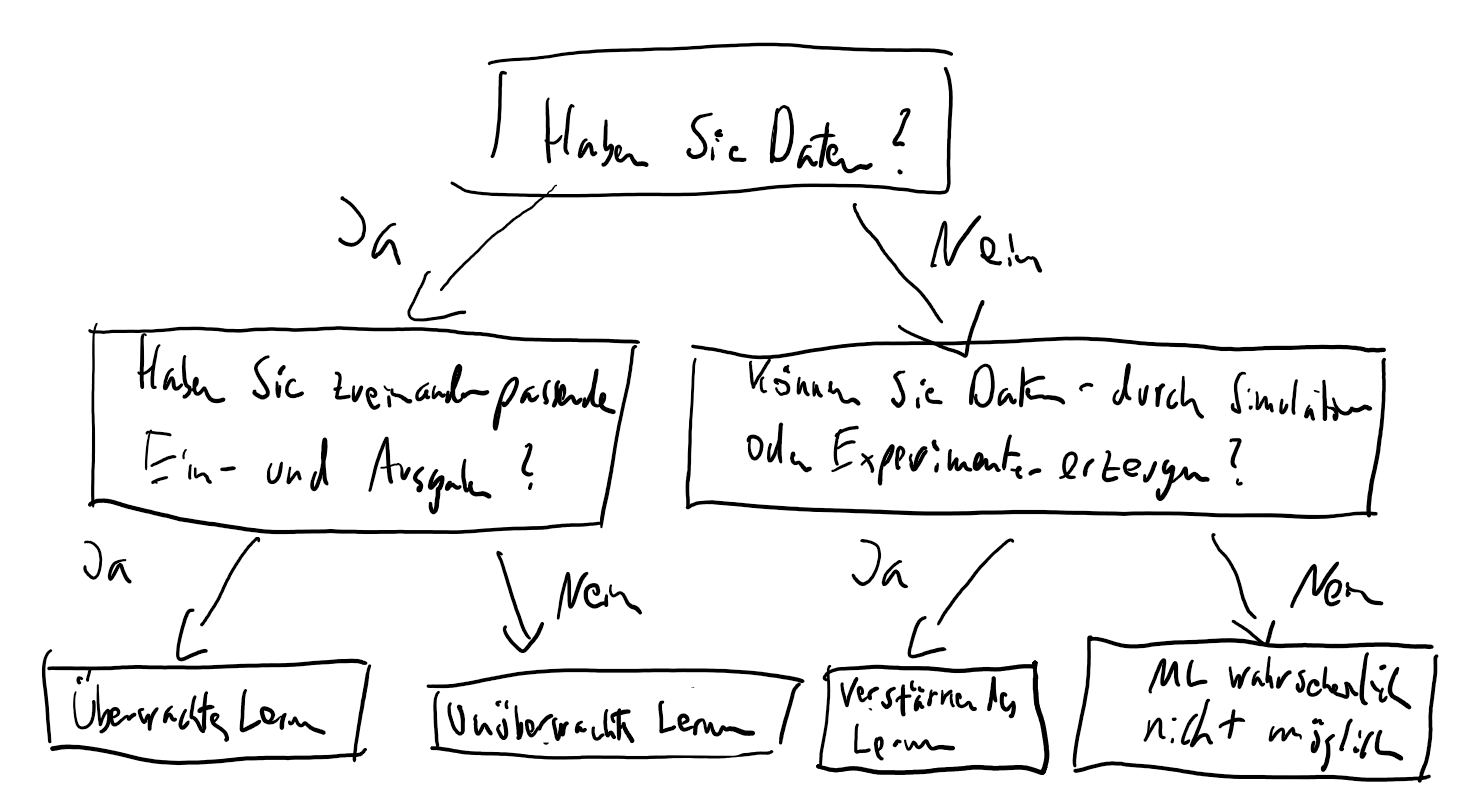 Haben Sie Daten?
Ja
Nein
Haben Sie zueinander passende
Ein- und Ausgaben?
Können Sie Daten - durch Simulation
oder Experimente - erzeugen?
Ja
Nein
Ja
Nein
Überwachtes Lernen
Unüberwachtes Lernen
Verstärkendes
Lernen
ML wahrscheinlich
nicht möglich